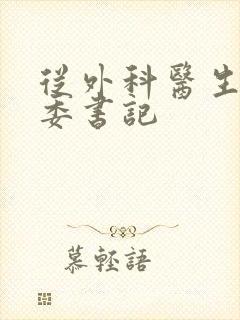 從外科醫生
委書記
慕輕語